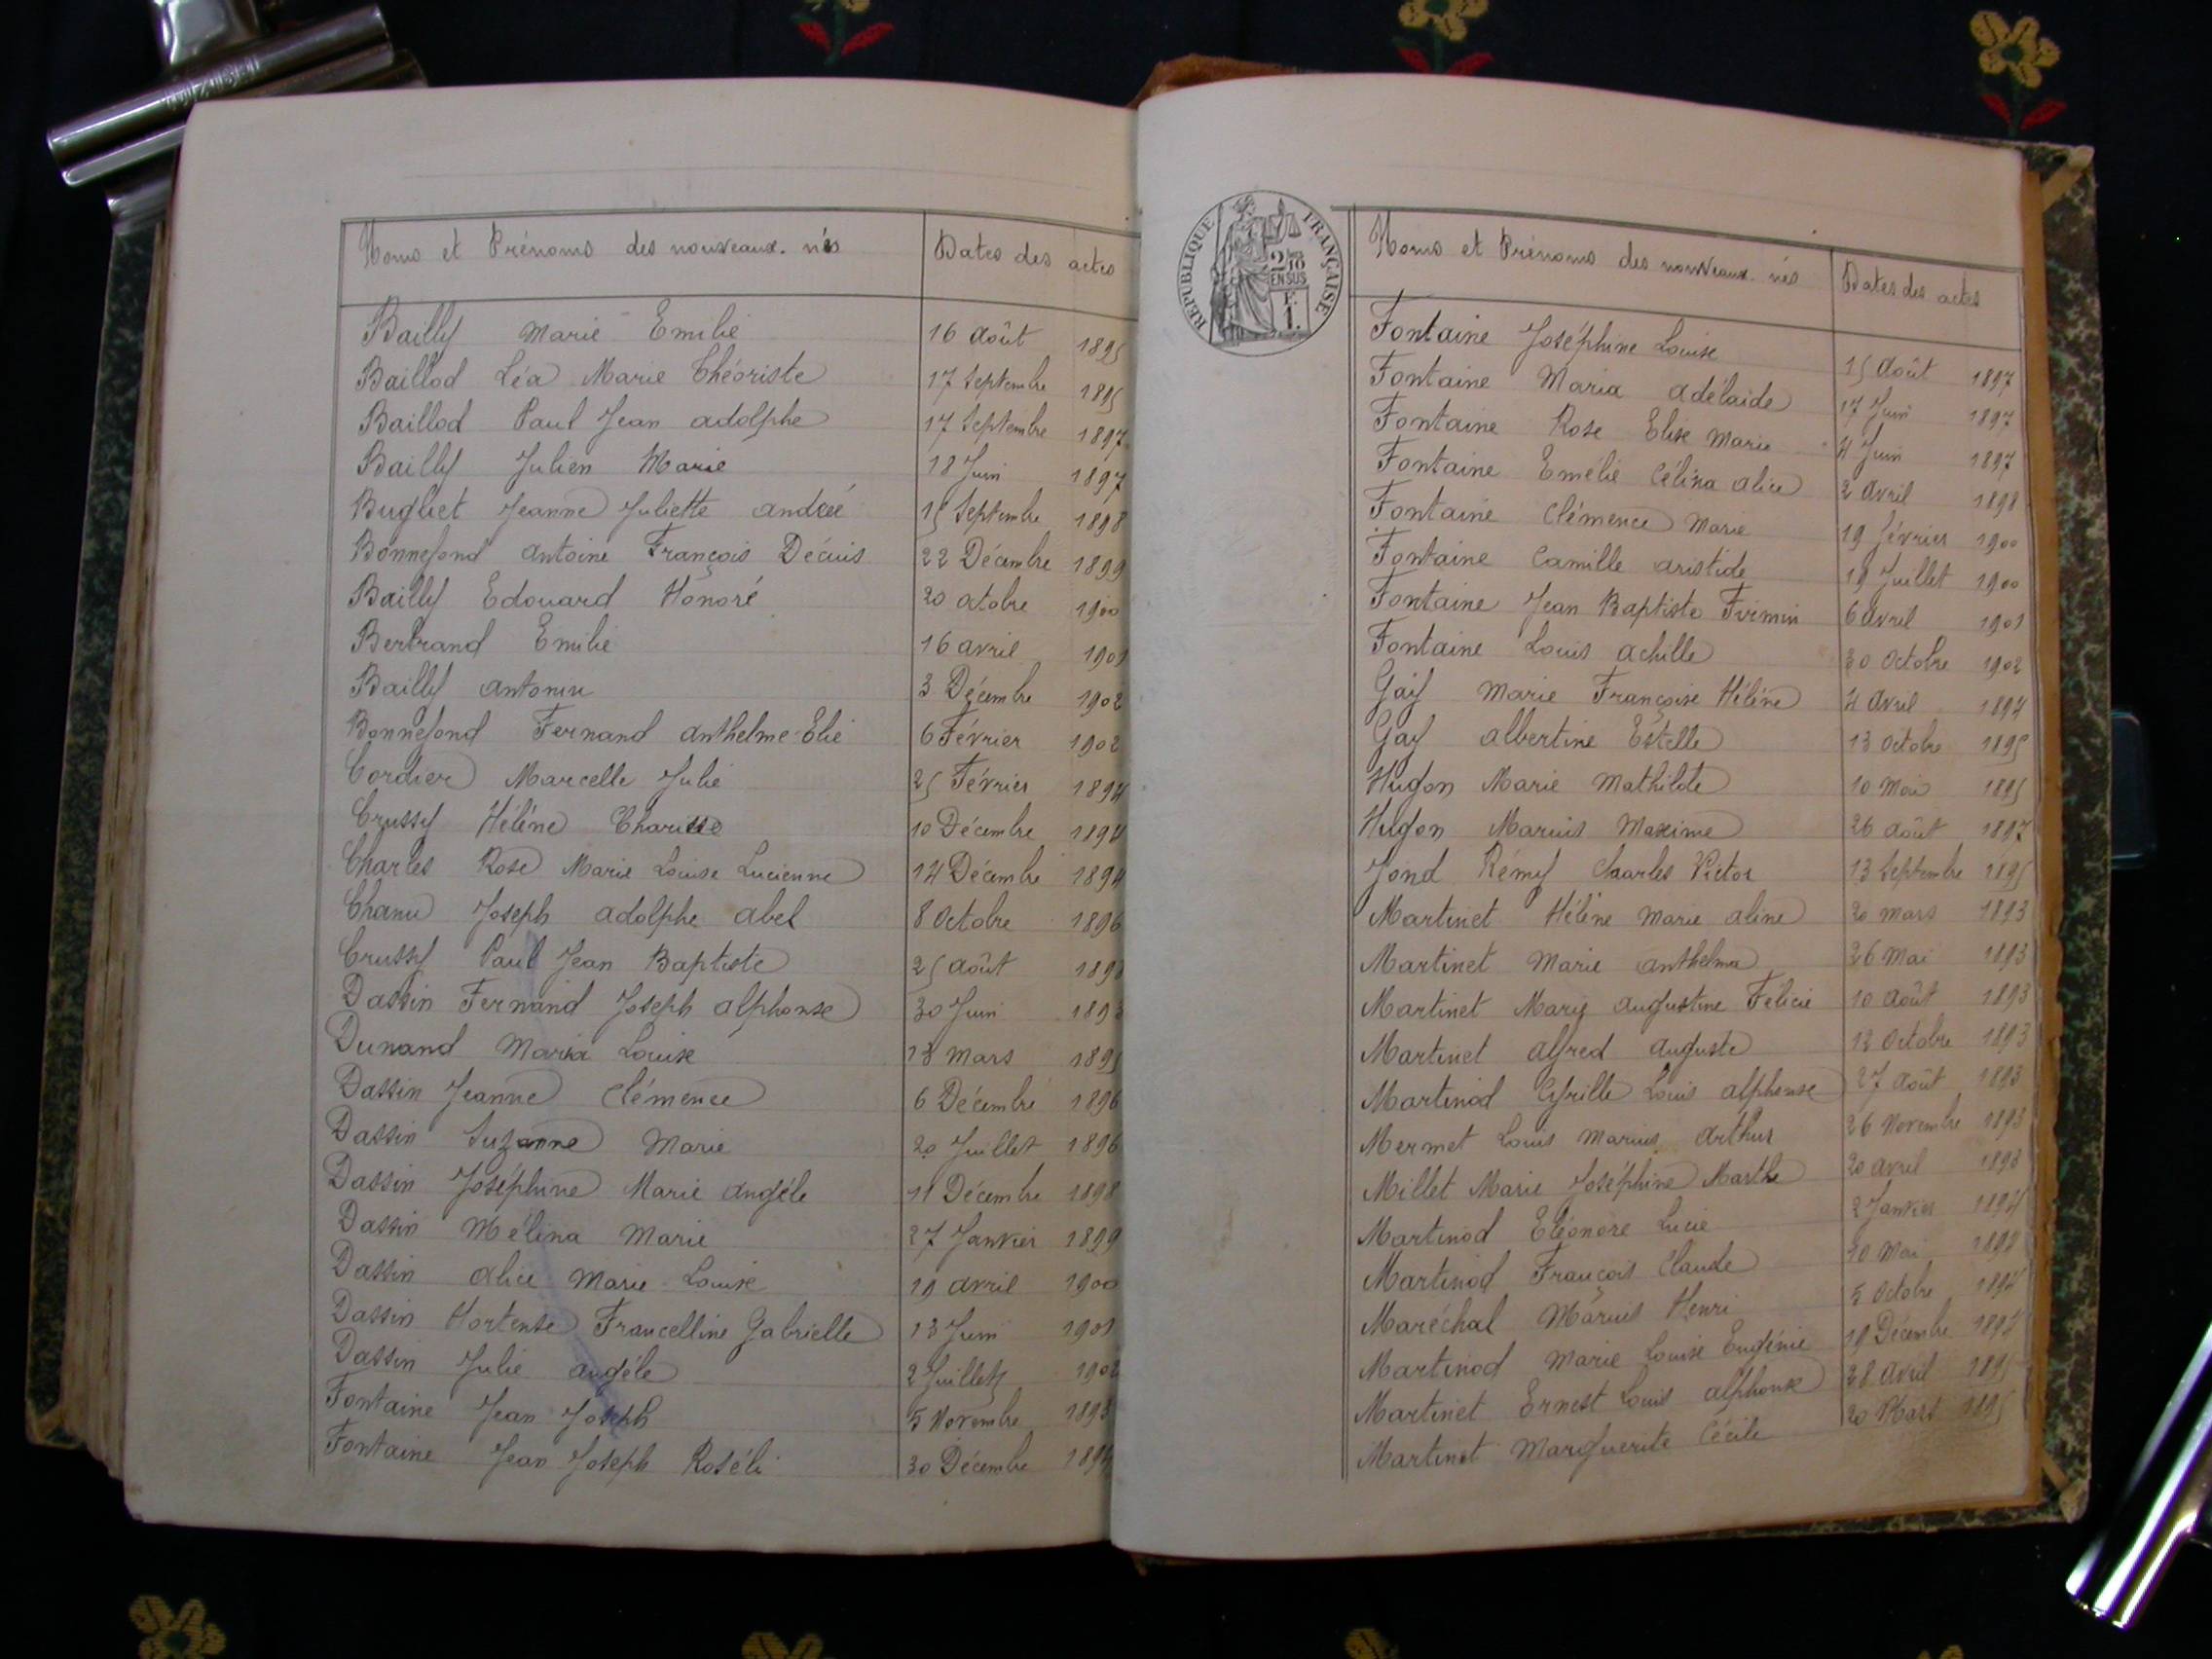 Noms et Prénoms des nouveaux-nés Dates des actes
Bailly Marie Emilie 16 Août 1895
Baillod Léa Marie Théoriste 17 Septembre 1895
Baillod Paul Jean Adolphe 17 Septembre 1897
Bailly Julien Marie 18 Juin 1897
Bugliet Jeanne Juliette Andrée 15 Septembre 1898
Bonnefond Antoine François Décius 22 Décembre 1899
Bailly Edouard Honoré 20 Octobre 1900
Bertrand Emilie 16 Avril 1901
Bailly Antonin 3 Décembre 1902
Bonnefond Fernand Anthelme Elie 6 Février 1902
Cordier Marcelle Julie 25 Février 1894
Crussy Hélène 10 Décembre 1894
Charles Rose Marie Louise Lucienne 14 Décembre 1894
Chanu Joseph Adolphe Abel 8 Octobre 1896
Crussy Paul Jean Baptiste 25 Août
Dassin Fernand Joseph Alphonse 30 Juin 1893
Dunand Maria Louise 13 Mars 1895
Dassin Jeanne Clémence 6 Décembre 1896
Dassin Suzanne Marie 20 Juillet 1896
Dassin Joséphine Marie Angèle 11 Décembre 1898
Dassin Mélina Marie 27 Janvier 1899
Dassin Alice Marie-Louise 19 Avril 1900
Dassin Hortense Francelline Gabrielle 13 Juin 1901
Dassin Julie Angèle 2 Juillet 1902
Fontaine Jean Joseph 5 Novembre 1893
Fontaine Jean Joseph Roséli 30 Décembre 1894
RÉPUBLIQUE FRANÇAISE
2/10
EN SUS
F.
1.
Noms et Prénoms des nouveaux-nés Dates des actes
Fontaine Joséphine Louise 15 Août 1897
Fontaine Maria Adélaïde 17 Juin 1897
Fontaine Rose Elise Marie 4 Juin 1897
Fontaine Emélie Célina Alice 2 Avril 1898
Fontaine Clémence Marie 19 Février 1900
Fontaine Camille Aristide 19 Juillet 1900
Fontaine Jean Baptiste Firmin 6 Avril 1901
Fontaine Louis Achille 30 Octobre 1902
Gay Marie Françoise Hélène 4 Avril 1894
Gay Albertine Estelle 13 Octobre 1895
Hugon Marie Mathilde 10 Mai 1895
Hugon Marius Maxime 26 Août 1897
Jond Rémy Charles Victor 13 Septembre 1895
Martinet Hélène Marie Aline 20 Mars 1893
Martinet Marie Anthelma 26 Mai 1893
Martinet Mary Augustine Félicie 10 Août 1893
Martinet Alfred Auguste 12 Octobre 1893
Martinod Cyrille Louis Alphonse 27 Août 1893
Mermet Louis Marius Arthur 26 Novembre 1893
Millet Marie Joséphine Marthe 20 Avril 1893
Martinod Eléonore Lucie 2 Janvier 1894
Martinod François Claude 10 Mai
Maréchal Marius Henri 5 Octobre 1894
Martinod Marie Louise Eugénie 19 Décembre 1894
Martinet Ernest Louis Alphonse 28 Avril 1895
Martinet Marguerite Cécile 20 Mars 1895